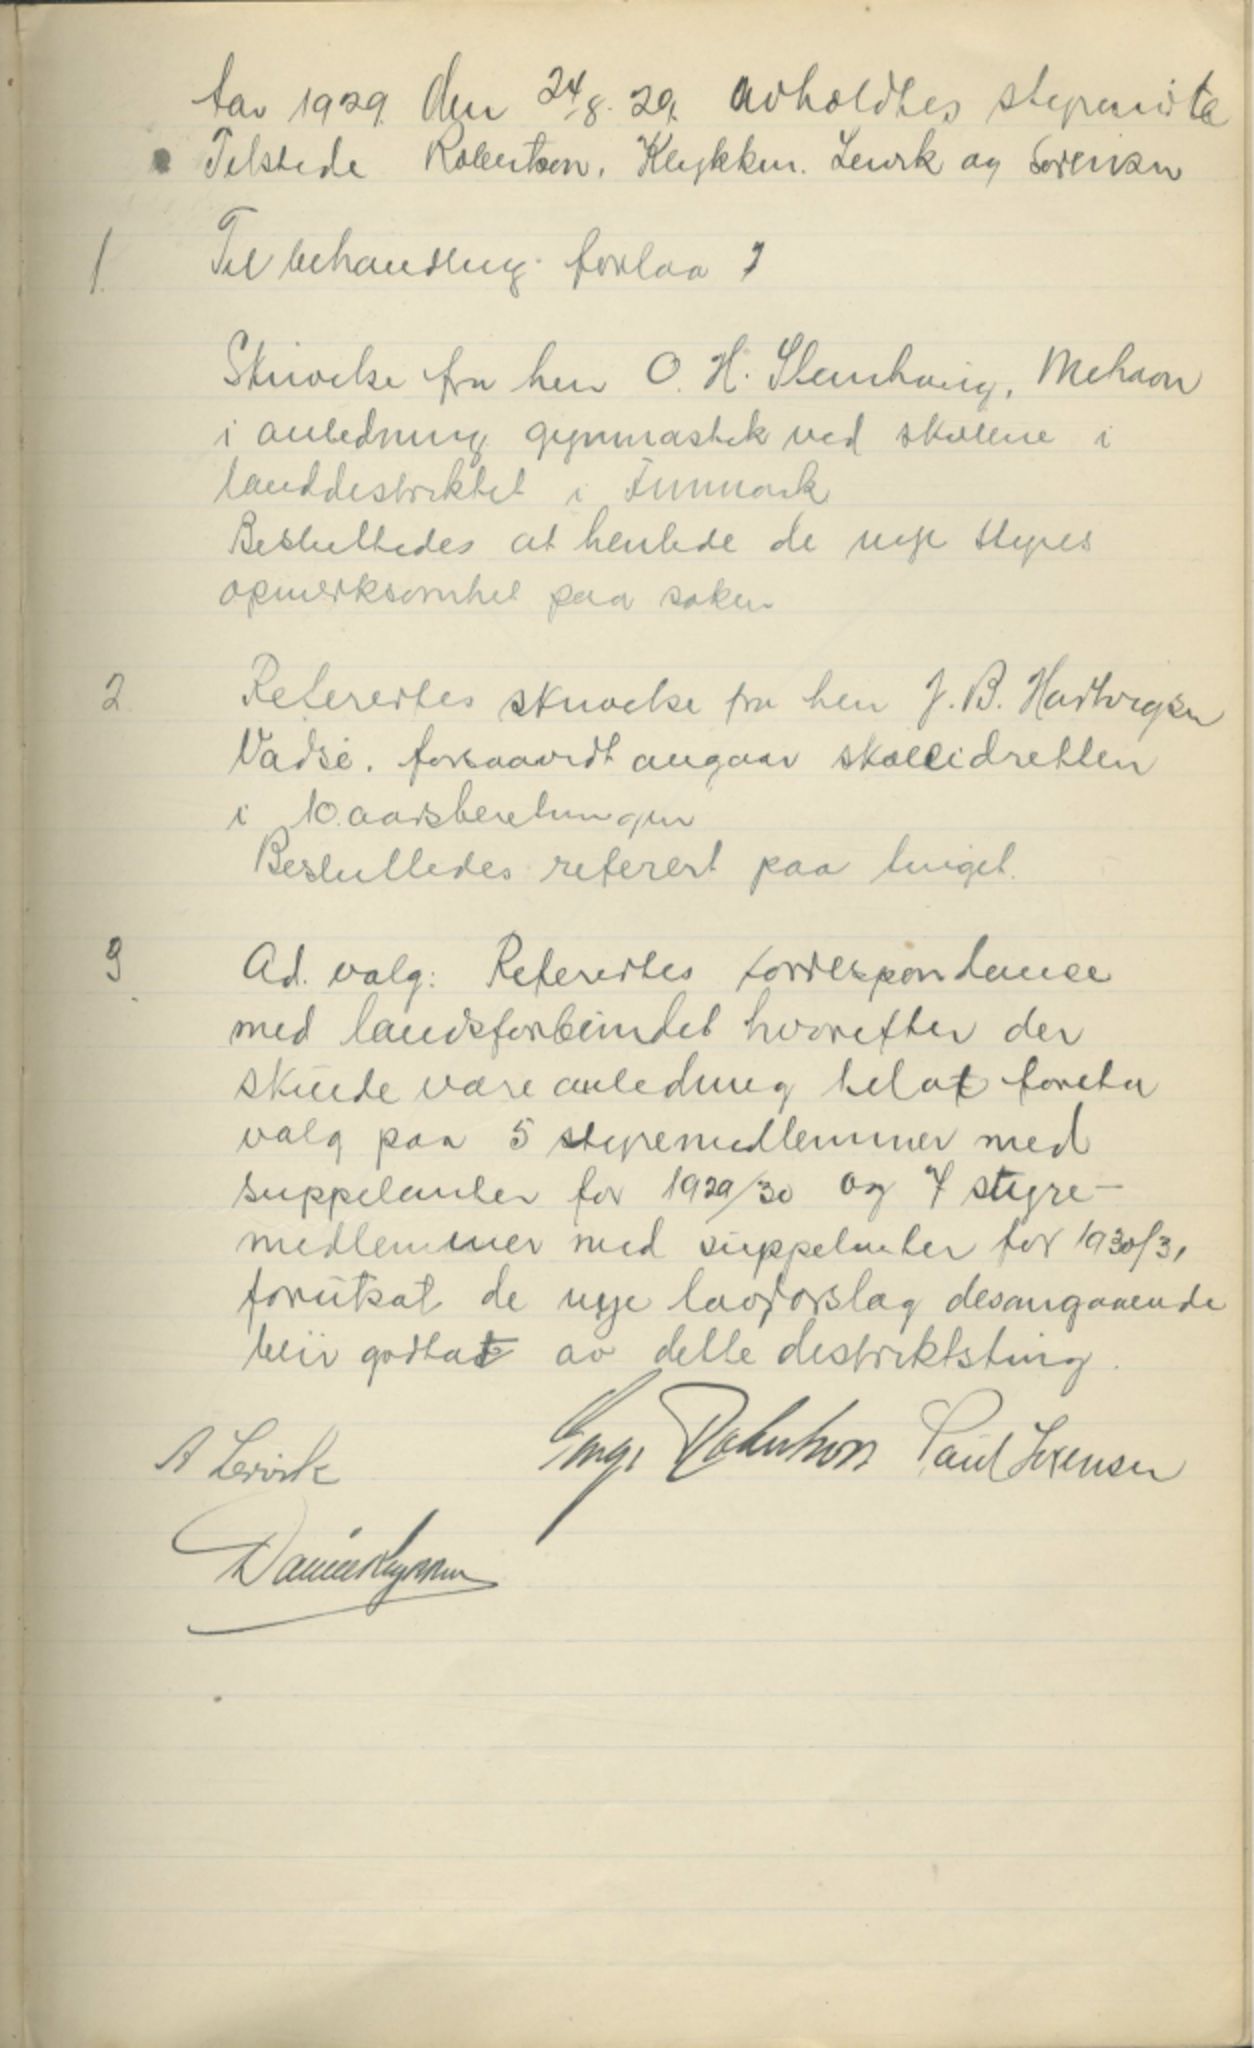 Aar 1929 den 24/8. 29. avholdtes styremøte
Tilstede Robertson, Klykken. Lervik og Sørensen
1. Til behandling forlaa :
Skrivelse fra herr O. H. Stenhaug, Mehavn
i anledning gymnastik ved skolene i
landdistriktet i Finmark
Besluttedes at henlede de nye styres
opmerksomhet paa saken
2. Refererdes skrivelse fra herr J. B. Hartvigsen
Vadsø. forsaavidt angaar skoleidretten
i 10.aarsberetningen
Besluttedes referert paa tinget.
3 Ad. valg: Refererdes korrespondance
med landsforbundet hvorefter der
skulde være anledning til at foreta
valg paa 5 styremedlemmer med
suppelanter for 1929/30 og 7 styre-
medlemmer med suppelanter for 1930/31
forutsat de nye lovforslag desangaaende
blir godtat av dette distriktsting.
A Lervik Robertson Paul Sørensen
Daniel Klykken